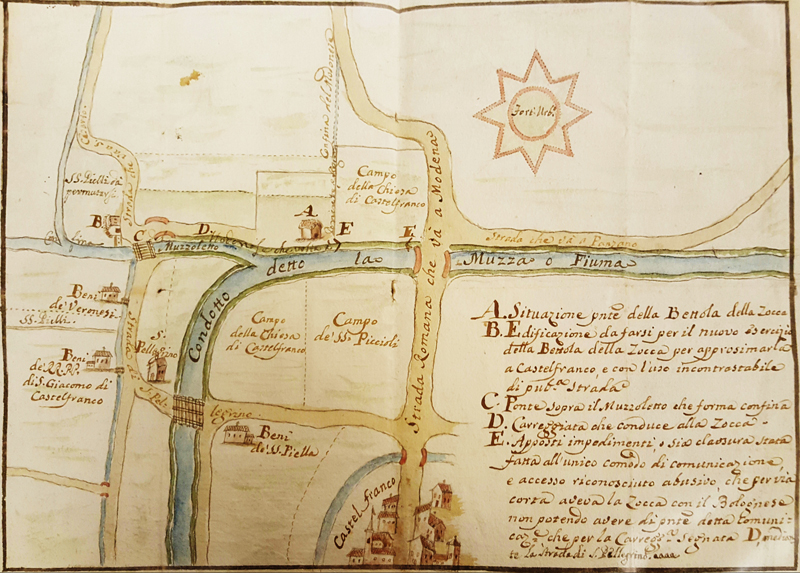 Forte Urb.º
Confina del Modonese
Strada
SS.
B.
C.
Muzzoletto
D.
A
E
E
Campo
della Chiesa
di Castelfranco
Strada che và a Modena
Strada che và a Panzano
Condotto
detto la
Muzza o Fiuma
Beni
de' Veronesi
Beni
de' RR.PP.
di S. Giacomo di
Castelfranco
S.
Pellegrino
Campo
della Chiesa
di Castelfranco
Campo
de' SS. Piccioli
Strada Romana che và a Modena
Beni
de' SS. Piella
Castel Franco
A. Situazione pnte della Bettola della Zocca
B. Edificazione da farsi per il nuovo Esercizio
della Bettola della Zocca per approsimarla
a Castelfranco, e con l'uso incontrastabile
di pub.ca Strada
C. Ponte sopra il Muzzoletto che forma confina
D. Carreggiata che conduce alla Zocca
E. Apposti impedimenti, o sia clausura stata
fatta all'unico comodo di comunicazione,
e accesso riconosciuto abusivo, che per via
corta aveva la Zocca con il Bolognese
non potendo avere di pnte detta Comuni
caz.e che per la Carregg.ta segnata D, median
te la Strada di S. Pellegrino